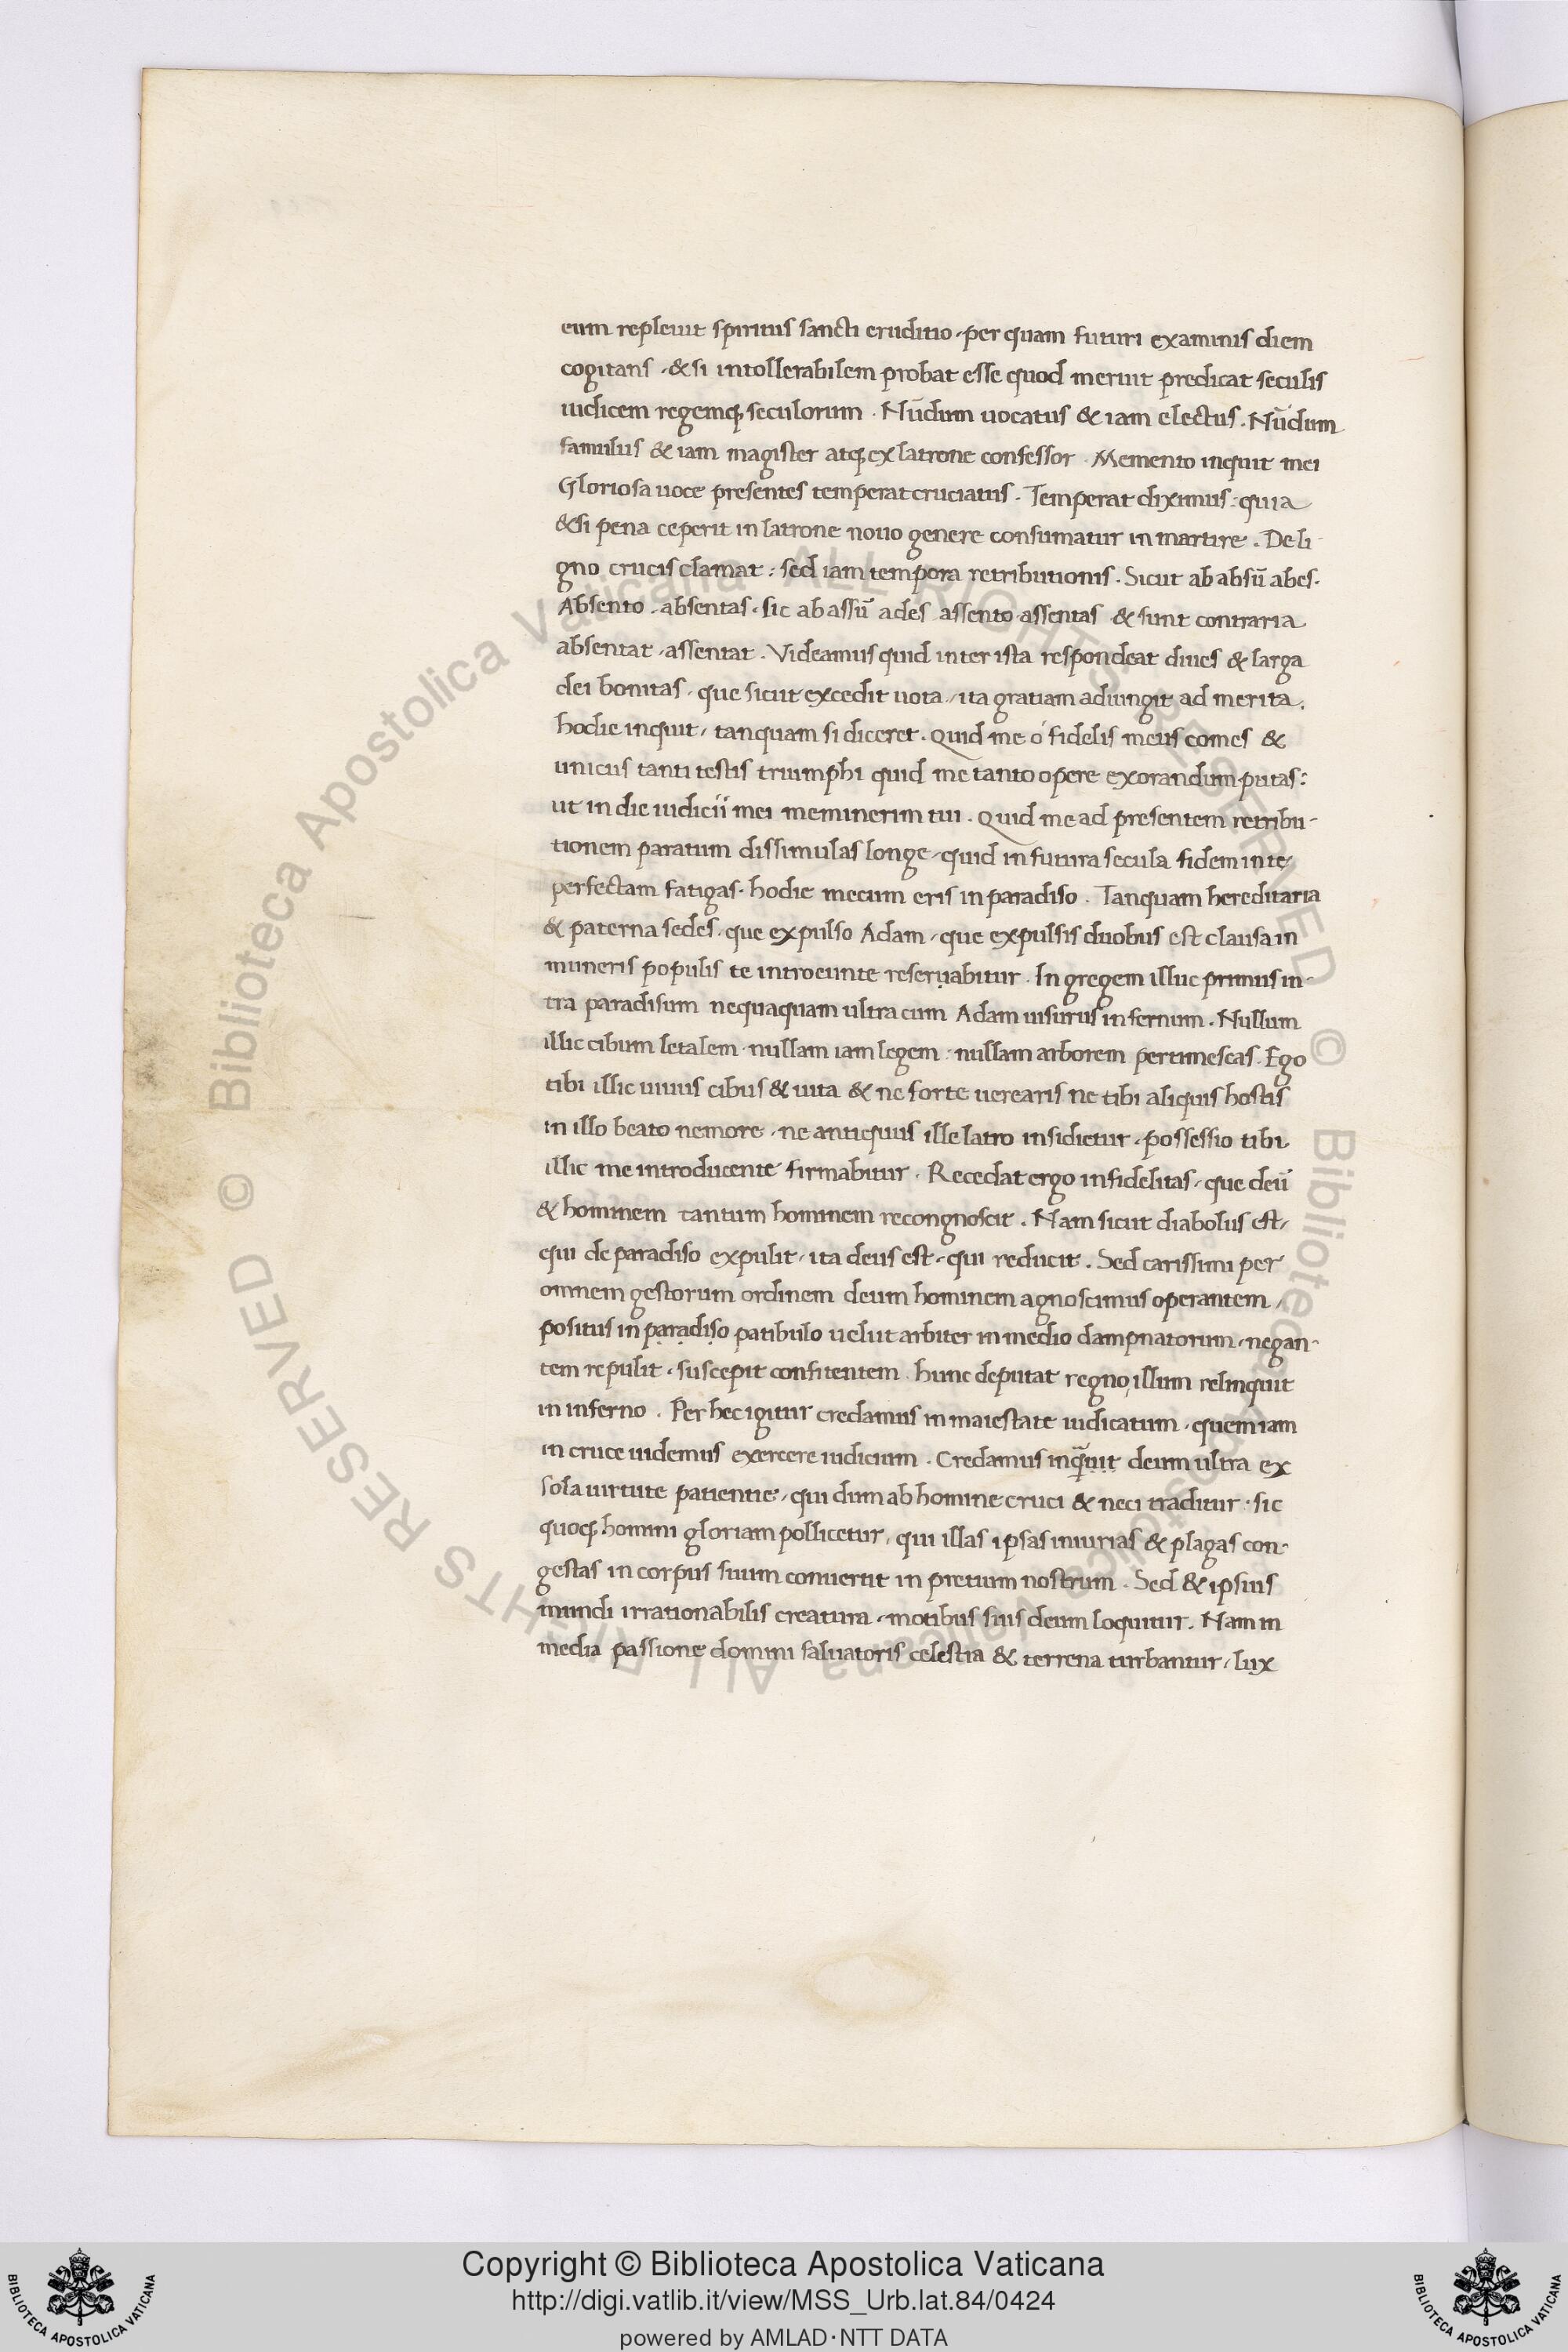 eum repleuit spiritus sancti eruditio · per quam futuri examinis diem
cogitans · & si intollerabilem probat esse quod meruit predicat seculis
iudicem regemq; seculorum · Nūdum uocatus & iam electus . Nūdum
famulus & iam magister atq; ex latrone confessor · Memento inquit mei
Gloriosa uoce presentes temperat cruciatus . Temperat diximus : quia
& si pena ceperit in latrone nouo genere consumatur in martire . De li-
gno crucis clamat : sed iam tempora retributionis . Sicut ab absū abes .
Absento . absentas . sic ab assū ades assento assentas & sunt contraria
absentat · assentat . Videamus quid inter ista respondeat diues & larga
dei bonitas , que sicut excedit uota , ita gratiam adiungit ad merita .
hodie inquit , tanquam si diceret . Quid me ó fidelis meus comes &
unicus tanti testis triumphi quid me tanto opere exorandum putas :
ut in die iudicii mei meminerim tui . Quid me ad presentem retribu-
tionem paratum dissimulas longe , quid in futura secula fidem in te
perfectam fatigas . hodie mecum eris in paradiso . Tanquam hereditaria
& paterna sedes . que expulso Adam , que expulsis duobus est clausa in
muneris populis te introeunte reseruabitur . In gregem illuc primus in-
tra paradisum nequaquam ultra cum Adam uisurus infernum . Nullum
illic cibum letalem · nullam iam legem : nullam arborem pertimescas . Ego
tibi illic uiuus cibus & uita & ne forte uerearis ne tibi aliquis hostis
in illo beato nemore , ne antiquus ille latro insidietur , possessio tibi
illic me introducente firmabitur . Recedat ergo infidelitas , que deū
& hominem tantum hominem recongnoscit . Nam sicut diabolus est ,
qui de paradiso expulit , ita deus est , qui reducit . Sed carissimi per
omnem gestorum ordinem deum hominem agnoscimus operantem ,
positus in paradiso patibulo uelut arbiter in medio dampnatorum , negan-
tem repulit , suscepit confitentem . hunc deputat regno , illum relinquit
in inferno . Per hec igitur credamus in maiestate iudicatum , quem iam
in cruce uidemus exercere iudicium . Credamus inquit deum ultra ex
sola uirtute patientie , qui dum ab homine cruci & neci traditur . sic
quoq; homini gloriam pollicetur , qui illas ipsas iniurias & plagas con-
gestas in corpus suum conuertit in pretium nostrum . Sed & ipsius
mundi irrationabilis creatura , motibus suis deum loquitur . Nam in
media passione domini saluatoris celestia & terrena turbantur , lux
© Biblioteca Apostolica Vaticana ALL RIGHTS RESERVED © Biblioteca Apostolica Vaticana ALL RIGHTS RESERVED
Copyright © Biblioteca Apostolica Vaticana
http://digi.vatlib.it/view/MSS_Urb.lat.84/0424
powered by AMLAD·NTT DATA
BIBLIOTECA APOSTOLICA VATICANA
BIBLIOTECA APOSTOLICA VATICANA